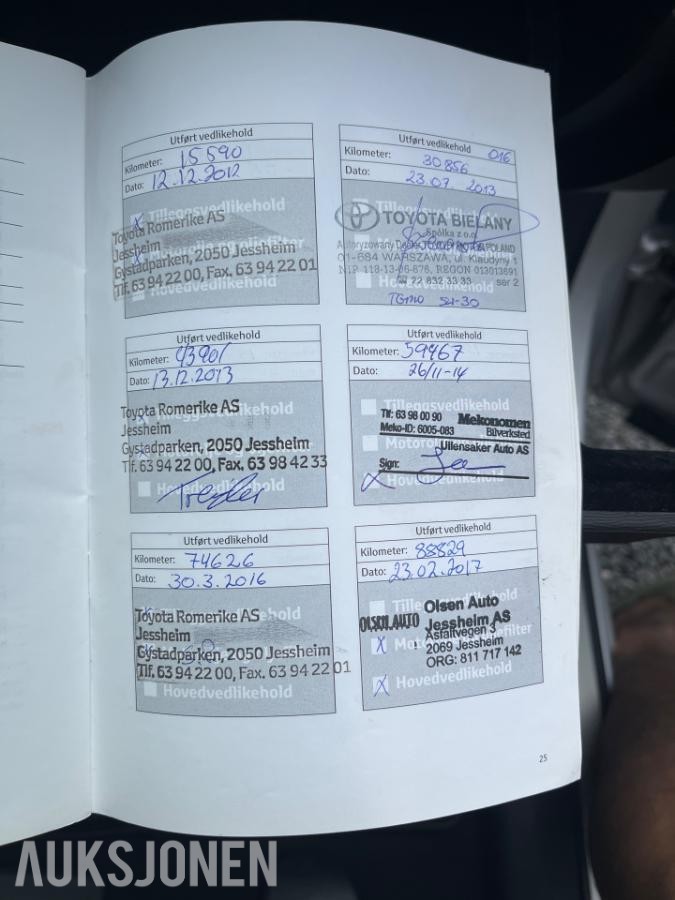 Utført vedlikehold
Kilometer: 15590
Dato: 12.12.2012
Tilleggsvedlikehold
Toyota Romerike AS
Jessheim
Gystadparken, 2050 Jessheim
Tlf. 63 94 22 00, Fax. 63 94 22 01
Hovedvedlikehold
Utført vedlikehold 016
Kilometer: 30856
Dato: 23.07 2013
Tilleggsvedlikehold
TOYOTA BIELANY
Spólka z o.o.
Autoryzowany Dealer POLAND
01-684 WARSZAWA, ul. Klaudyny 1
NIP 118-13-06-876, REGON 013013691
22 832 33 33 ser 2
TGMO 5W-30
Utført vedlikehold
Kilometer: 43901
Dato: 13.12.2013
Toyota Romerike AS
Jessheim
Gystadparken, 2050 Jessheim
Tlf. 63 94 22 00, Fax. 63 98 42 33
Hovedvedlikehold
Utført vedlikehold
Kilometer: 59467
Dato: 26/11-14
Tilleggsvedlikehold
Tlf: 63 98 00 90 Mekonomen
Meko-ID: 6005-083 Bilverksted
Ullensaker Auto AS
Sign:
Hovedvedlikehold
Utført vedlikehold
Kilometer: 74626
Dato: 30.3.2016
Toyota Romerike AS
Jessheim
Gystadparken, 2050 Jessheim
Tlf. 63 94 22 00, Fax. 63 94 22 01
Hovedvedlikehold
Utført vedlikehold
Kilometer: 88829
Dato: 23.02.2017
OLSEN AUTO Olsen Auto
Jessheim AS
Asfaltvegen 3
2069 Jessheim
ORG: 811 717 142
Hovedvedlikehold
25
AUKSJONEN